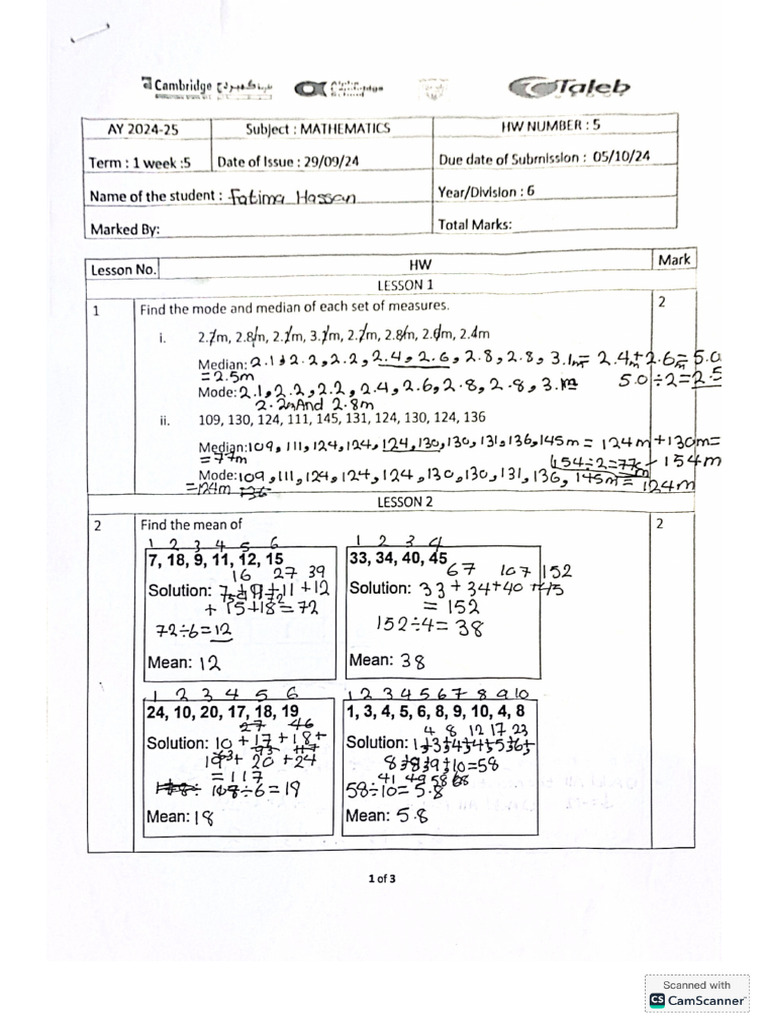 Cambridge
Taleb
AY 2024-25
Subject : MATHEMATICS
HW NUMBER : 5
Term : 1 week :5
Date of Issue : 29/09/24
Due date of Submission : 05/10/24
Name of the student : Fatima Hassan
Year/Division : 6
Marked By:
Total Marks:
Lesson No.
HW
Mark
LESSON 1
1
Find the mode and median of each set of measures.
2
i. 2.2m, 2.8m, 2.2m, 3.1m, 2.1m, 2.8m, 2.6m, 2.4m
Median: 2.1, 2.2, 2.2, 2.4, 2.6, 2.8, 2.8, 3.1m = 2.4m + 2.6m = 5.0
= 2.5m
5.0 ÷ 2 = 2.5
Mode: 2.1, 2.2, 2.2, 2.4, 2.6, 2.8, 2.8, 3.m
2.2m And 2.8m
ii. 109, 130, 124, 111, 145, 131, 124, 130, 124, 136
Median: 109, 111, 124, 124, 124, 130, 130, 131, 136, 145m = 124m + 130m =
= 77m
154 ÷ 2 = 77m
154m
Mode: 109, 111, 124, 124, 124, 130, 130, 131, 136, 145m = 124m
= 124m
LESSON 2
2
Find the mean of
2
1 2 3 4 5 6
7, 18, 9, 11, 12, 15
16 27 39
Solution: 7+9+11+12
+ 15+18 = 72
72÷6=12
Mean: 12
1 2 3 4
33, 34, 40, 45
67 107 152
Solution: 33+34+40+45
= 152
152÷4= 38
Mean: 38
1 2 3 4 5 6
24, 10, 20, 17, 18, 19
27 46
Solution: 10 + 17 + 18 +
19 + 20 + 24
= 117
÷6 = 19
Mean: 18
1 2 3 4 5 6 7 8 9 10
1, 3, 4, 5, 6, 8, 9, 10, 4, 8
4 8 12 17 23
Solution: 1+3+4+4+5+6+
8+8+9+10=58
41 49 58 68
58÷10= 5.8
Mean: 5.8
1 of 3
Scanned with
CS CamScanner